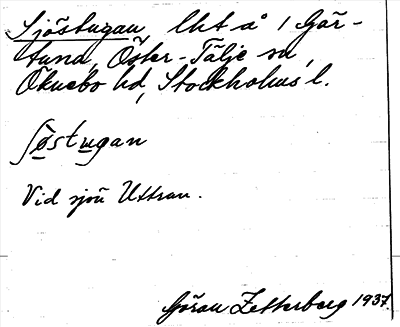 Sjöstugan, lht å 1 Gör-
tuna, Öster-Tälje sn,
Öknebo hd, Stockholms l.
ʃø̀stugan
Vid sjön Uttran.
Göran Zetterberg 1937.